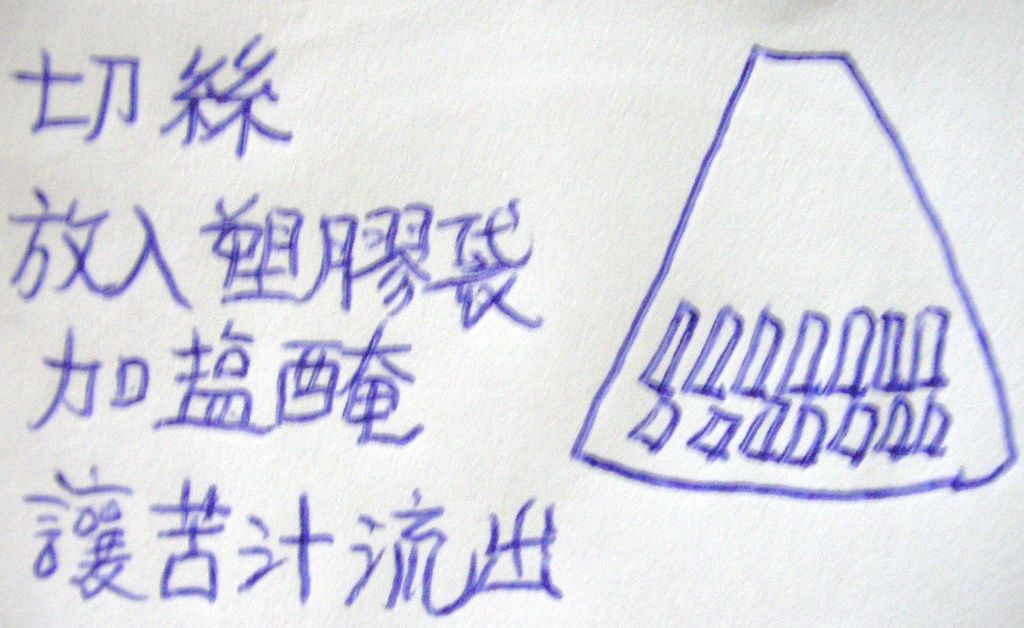 切絲
放入塑膠袋
加塩醃
讓苦汁流出